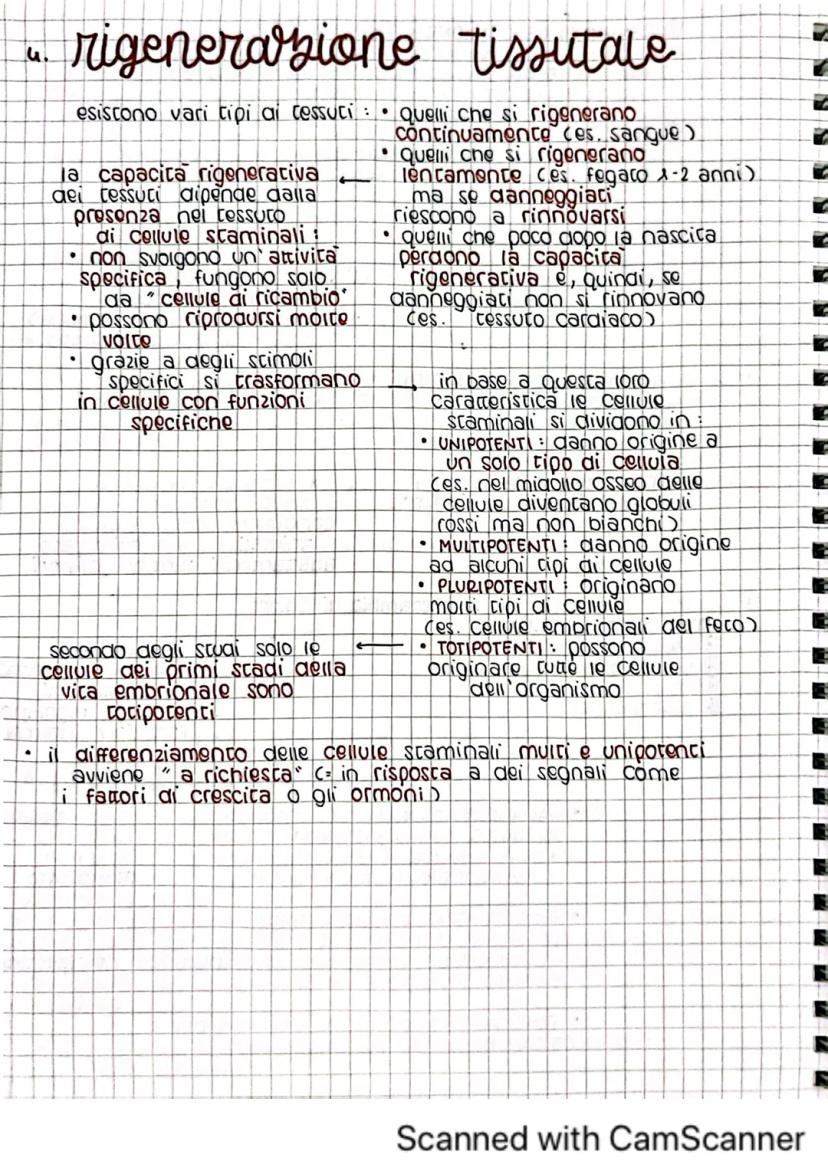 4. rigenerazione tissutale
esistono vari tipi di tessuti :
• quelli che si rigenerano
continuamente (es. sangue)
• quelli che si rigenerano
lentamente (es. fegato 1-2 anni)
ma se danneggiati
riescono a rinnovarsi
• quelli che poco dopo la nascita
perdono la capacità
rigenerativa e, quindi, se
danneggiati non si rinnovano
(es. tessuto cardiaco)
la capacità rigenerativa ←
dei tessuti dipende dalla
presenza nel tessuto
di cellule staminali :
• non svolgono un'attività
specifica, fungono solo
da "cellule di ricambio"
• possono riprodursi molte
volte
• grazie a degli stimoli
specifici si trasformano →
in cellule con funzioni
specifiche
in base a questa loro
caratteristica le cellule
staminali si dividono in :
• UNIPOTENTI : danno origine a
un solo tipo di cellula
(es. nel midollo osseo delle
cellule diventano globuli
rossi ma non bianchi)
• MULTIPOTENTI : danno origine
ad alcuni tipi di cellule
• PLURIPOTENTI : originano
molti tipi di cellule
(es. cellule embrionali del feto)
• TOTIPOTENTI : possono
originare tutte le cellule
dell'organismo
secondo degli studi solo le ←
cellule dei primi stadi della
vita embrionale sono
totipotenti
• il differenziamento delle cellule staminali multi e unipotenti
avviene "a richiesta" (= in risposta a dei segnali come
i fattori di crescita o gli ormoni)
Scanned with CamScanner